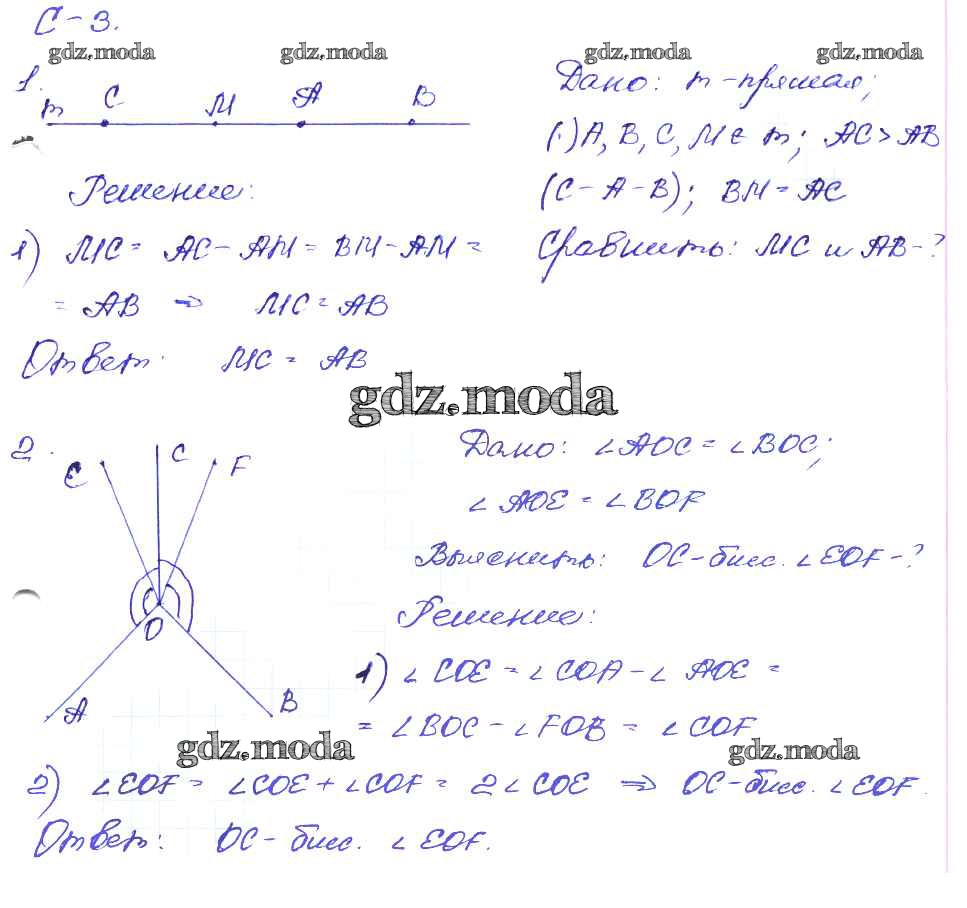 С-3.
gdz.moda gdz.moda gdz.moda gdz.moda
1.
m C M A B
Дано: m-прямая;
(·)A, B, C, M ∈ m; AC > AB
(C-A-B); BM = AC
Сравнить: MC и AB-?
Решение:
1) MC = AC - AM = BM - AM =
= AB ⇒ MC = AB
Ответ: MC = AB
gdz.moda
2.
E C F
O
A B
Дано: ∠AOC = ∠BOC;
∠AOE = ∠BOF
Выяснить: OC-бисс. ∠EOF-?
Решение:
1) ∠COE = ∠COA - ∠AOE =
= ∠BOC - ∠FOB = ∠COF
gdz.moda gdz.moda
2) ∠EOF = ∠COE + ∠COF = 2∠COE ⇒ OC-бисс. ∠EOF.
Ответ: OC-бисс. ∠EOF.